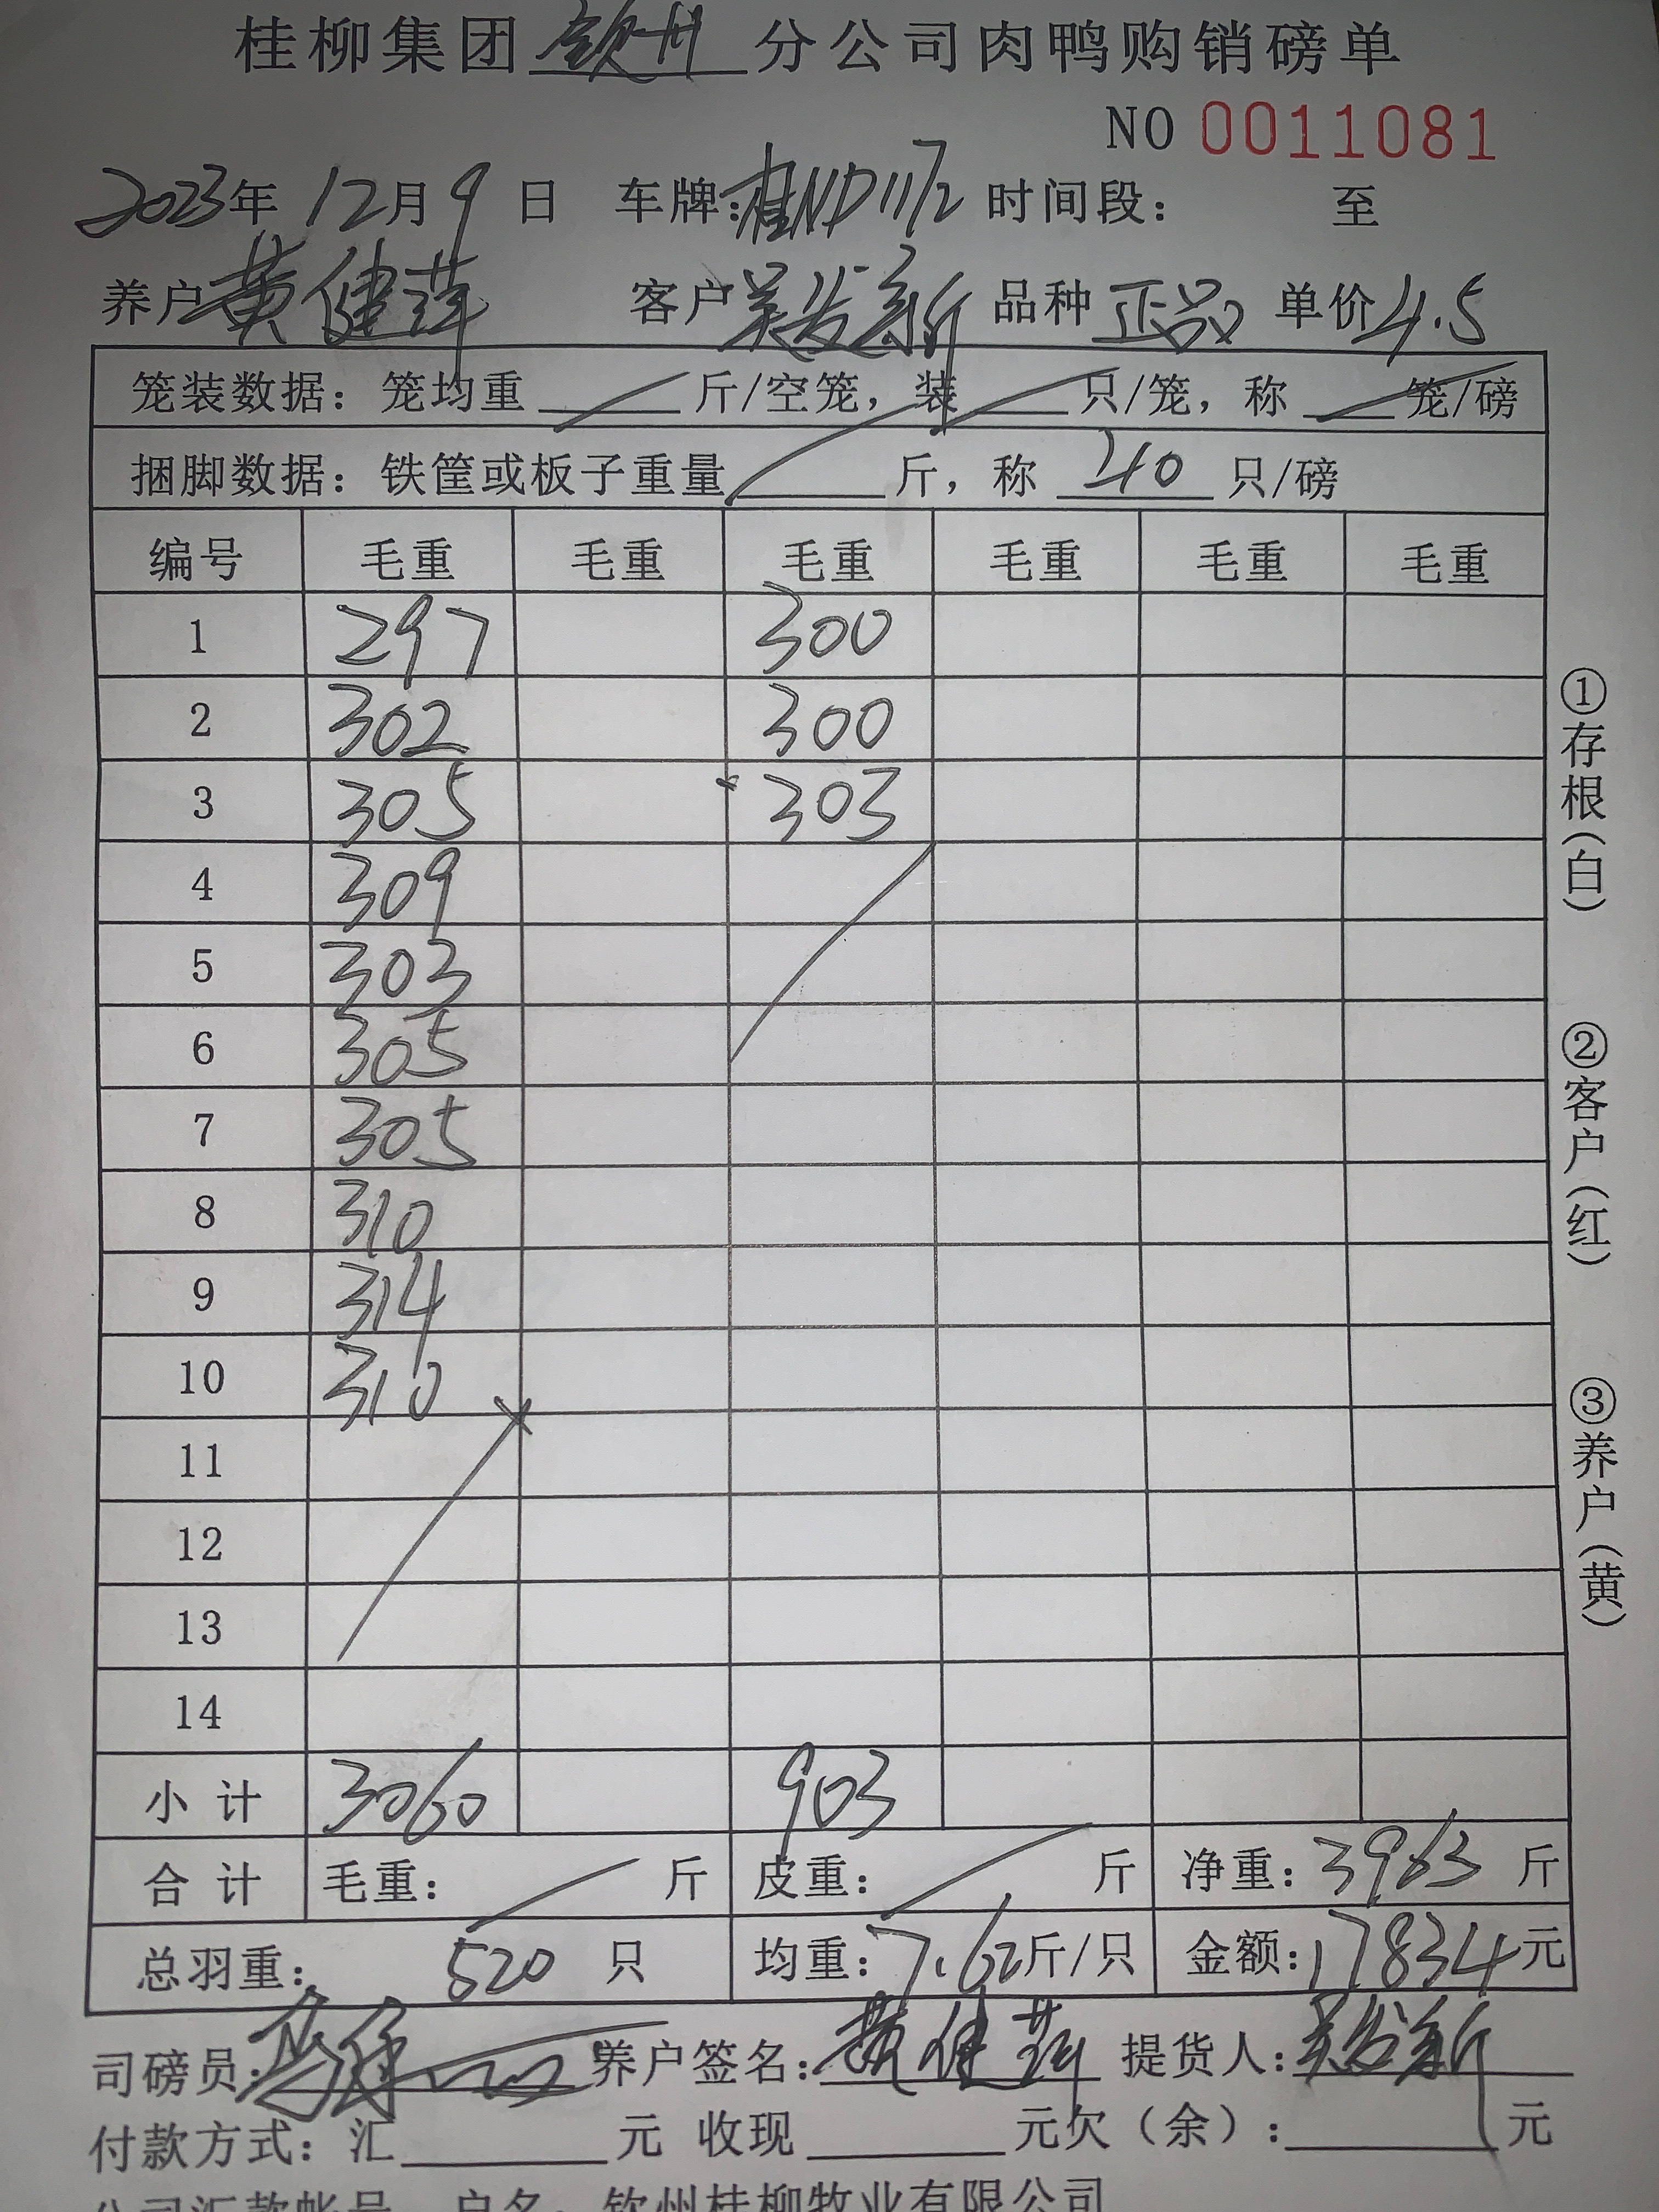 桂柳集团钦州分公司肉鸭购销磅单
NO 0011081
2023年 12月 9日 车牌:桂ND1172 时间段: 至
养户黄健萍 客户吴发新 品种 正品 单价4.5
笼装数据:笼均重 斤/空笼,装 只/笼,称 笼/磅
捆脚数据:铁筐或板子重量 斤,称 40 只/磅
编号 毛重 毛重 毛重 毛重 毛重 毛重
1 297 300
2 302 300
3 305 303
4 309
5 303
6 305
7 305
8 310
9 314
10 310
11
12
13
14
小计 3060 903
合计 毛重: 斤 皮重: 斤 净重:3963 斤
总羽重: 520 只 均重:7.62斤/只 金额:17834元
司磅员: 养户签名:黄健萍 提货人:吴发新
付款方式:汇 元 收现 元欠(余): 元
公司汇款帐号 户名:钦州桂柳牧业有限公司
①存根(白)
②客户(红)
③养户(黄)